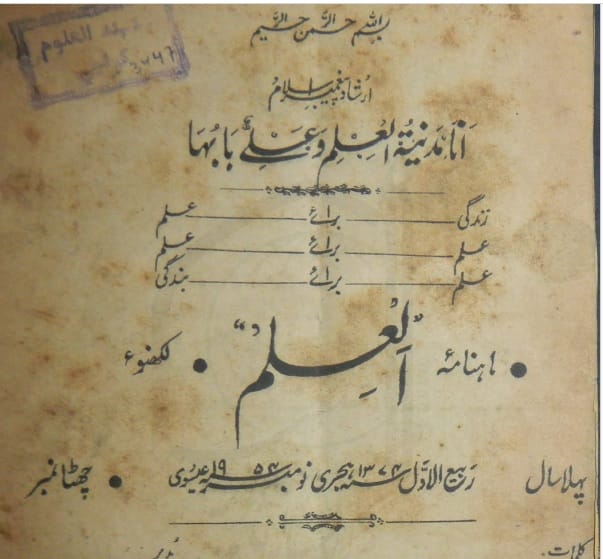 بسم اللہ الرحمن الرحیم
ارشاد پیغمبر اسلام
اَنَا مَدِیْنَۃُ الْعِلْمِ وَعَلِیٌّ بَابُہَا
زندگی ــــــ برائے ــــــ علم
علم ــــــ برائے ــــــ علم
علم ــــــ برائے ــــــ بندگی
● ماہنامہ "اَلْعِلْم" ● لکھنوء
پہلا سال ربیع الاول ۱۳۷۴ ہجری نومبر ۱۹۵۴ عیسوی ● چھٹا نمبر